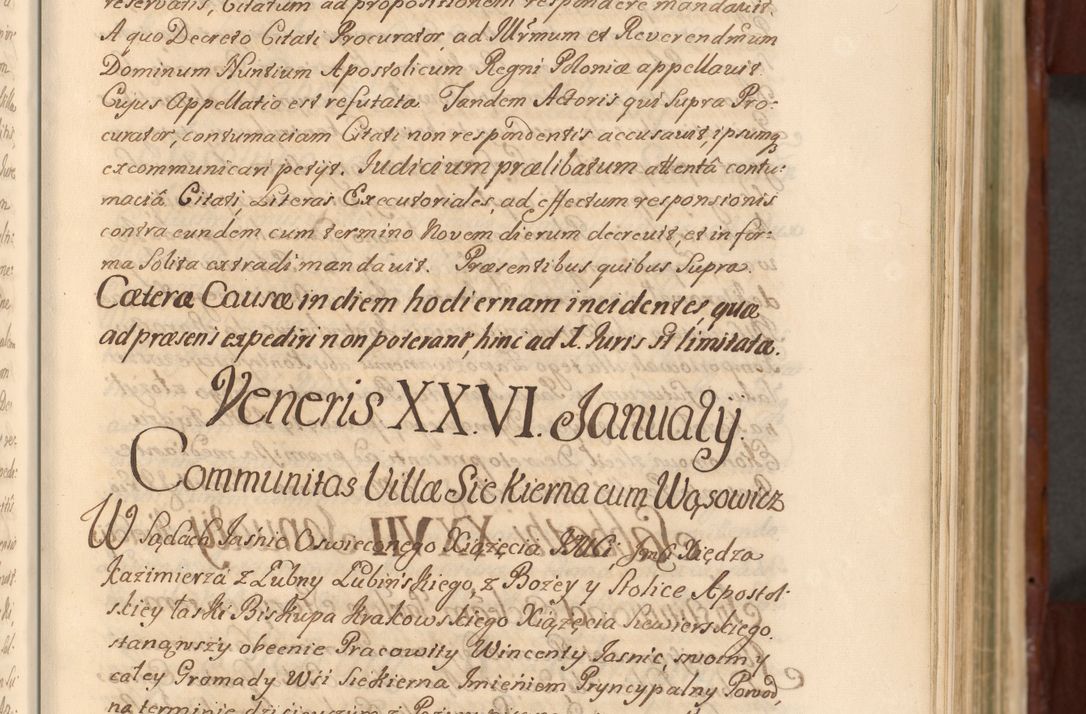 reservatis, Citatum ad propositionem respondere mandavit.
A quo Decreto Citati Procurator, ad Illr̃mum et Reverendm̃um
Dominum Nuntium Apostolicum Regni Poloniæ appellavit.
Cujus Appellatio est refutata. Tandem Actoris qui supra Pro=
curator, contumaciam Citati non respondentis accusavit, ipsumq́
excommunicari petijt. Iudicium prælibatum attentâ contu=
maciâ Citati, Literas Executoriales, ad effectum responsionis
contra eundem cum termino Novem dierum decrevit, et in for=
ma solita extradi mandavit. Præsentibus quibus supra.
Cæteræ Causæ in diem hodiernam incidentes, quæ
ad præsens expediri non poterant, hinc ad X. Iuris st limitatæ.
Veneris XXVI. Januarij.
Communitas Villæ Siekierna cum Wąsowicz
W Sądach Jasnie Oswieconego Xiązęcia JMCi, Jmći Xiędza
Kazimierza z Łubny Łubińskiego, z Bozey y Stolice Apostol-
skiey łaski Biskupa Krakowskiego Xiązęcia Siewierskiego.
stanąwszy obecnie Pracowity Wincenty Jasnic, swoim y
całey Gromady Wsi Siekierna Imieniem Pryncypalny Powod,
na terminie